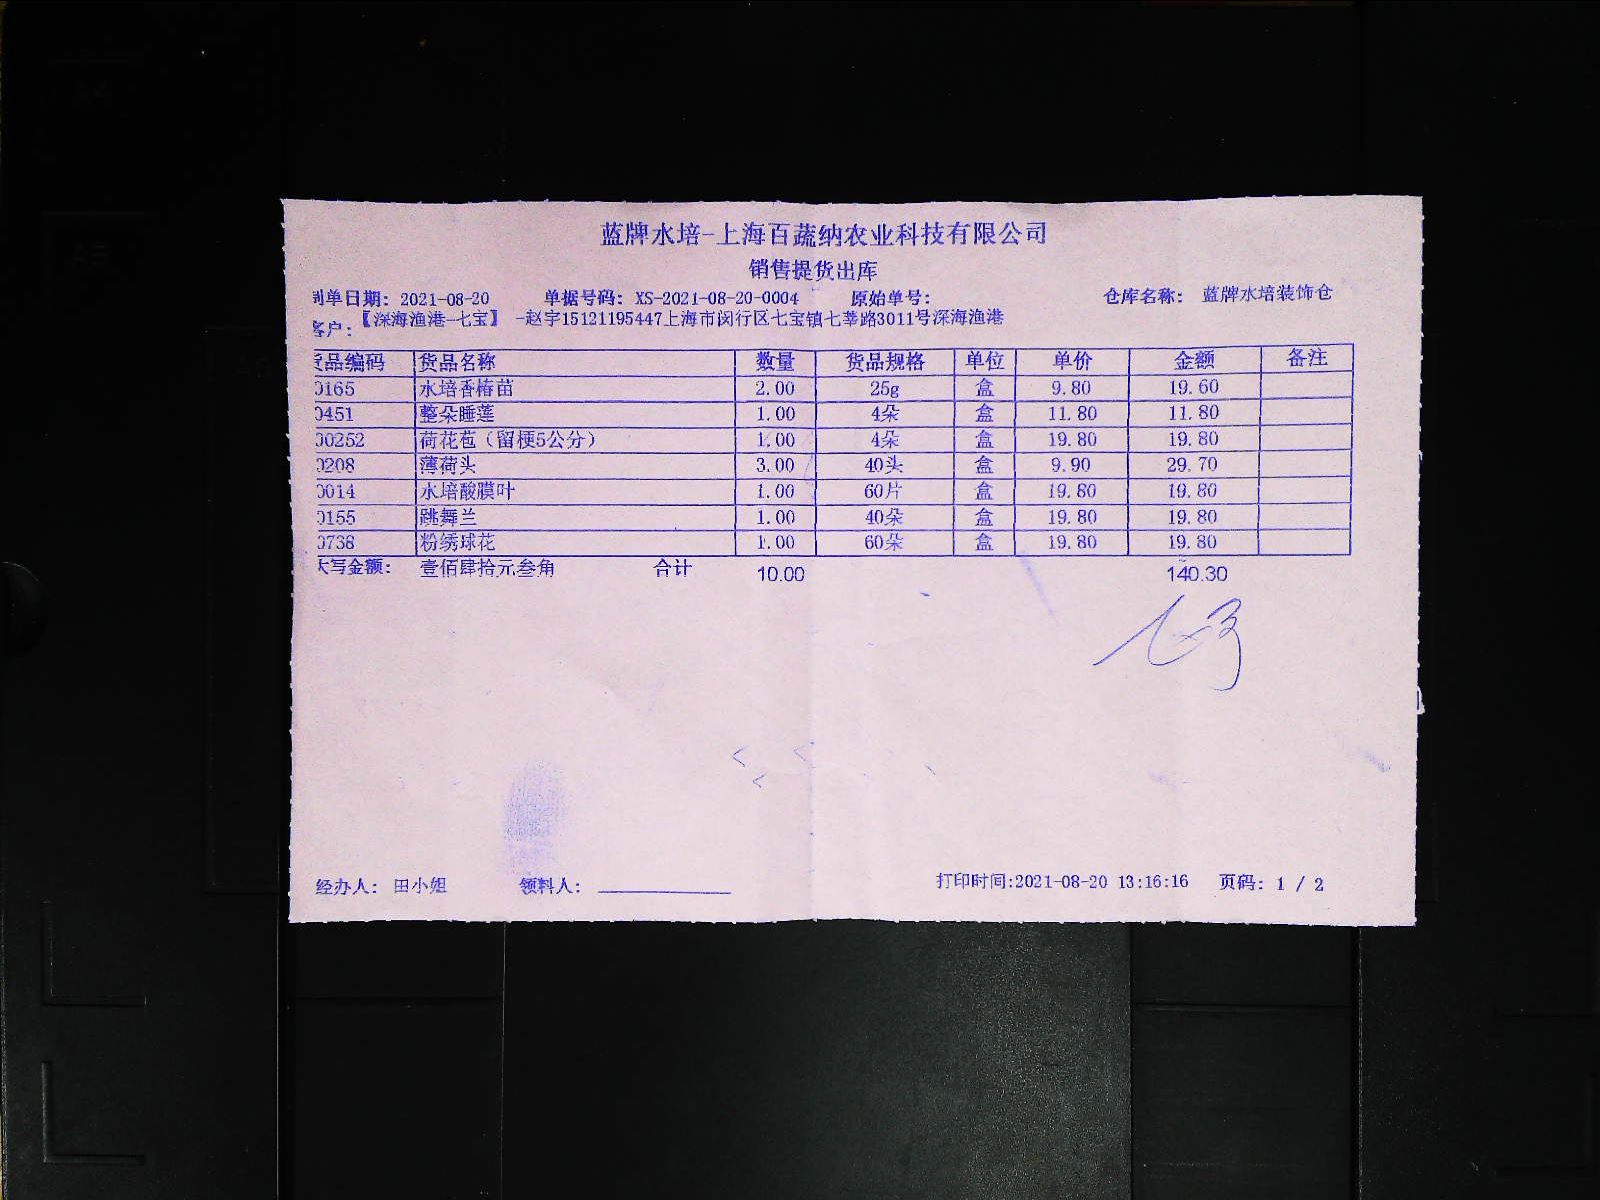 蓝牌水培-上海百蔬纳农业科技有限公司
销售提货出库
制单日期: 2021-08-20 单据号码: XS-2021-08-20-0004 原始单号: 仓库名称: 蓝牌水培装饰仓
客户: 【深海渔港-七宝】 -赵宇15121195447上海市闵行区七宝镇七莘路3011号深海渔港
货品编码 货品名称 数量 货品规格 单位 单价 金额 备注
0165 水培香椿苗 2.00 25g 盒 9.80 19.60
0451 整朵睡莲 1.00 4朵 盒 11.80 11.80
00252 荷花苞（留梗5公分） 1.00 4朵 盒 19.80 19.80
0208 薄荷头 3.00 40头 盒 9.90 29.70
0014 水培酸膜叶 1.00 60片 盒 19.80 19.80
0155 跳舞兰 1.00 40朵 盒 19.80 19.80
0738 粉绣球花 1.00 60朵 盒 19.80 19.80
大写金额: 壹佰肆拾元叁角 合计 10.00 140.30
经办人: 田小姐 领料人: 打印时间:2021-08-20 13:16:16 页码: 1 / 2